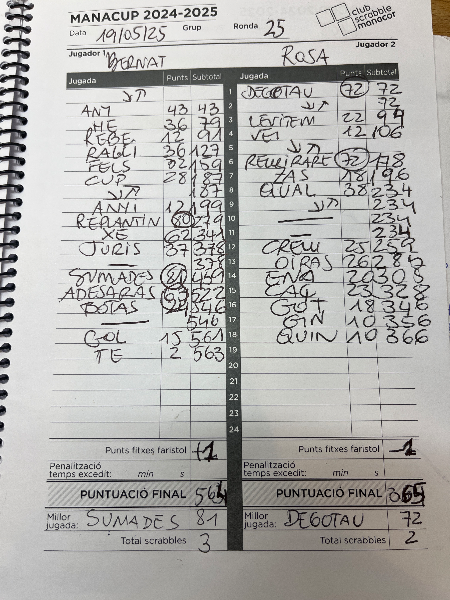 MANACUP 2024-2025
club scrabble manacor
Data 19/05/25 Grup Ronda 25
Jugador 1 BERNAT ROSA Jugador 2
Jugada Punts Subtotal Jugada Punts Subtotal
↘↗ 1 DEGOTAU 72 72
ANY 43 43 2 ↘↗ 72
HE 36 79 3 LEVITEM 22 94
REBE 12 91 4 VEI 12 106
RALLI 36 127 5
FELS 32 159 6 RELLIRARE 72 178
CUP 28 187 7 ZAS 18 196
↘↗ 187 8 QUAL 38 234
ANYI 12 199 9 ↘↗ 234
REPLANTIN 80 279 10 — 234
XE 62 341 11 — 234
JURIS 37 378 12 CREUI 25 259
— 378 13 OIRAS 26 285
SUMADES 81 459 14 ENA 20 305
ADESARAS 63 522 15 CAÇ 23 328
BOTAS 24 546 16 GOT 18 346
— 546 17 GIN 10 356
GOL 15 561 18 QUIN 10 366
TE 2 563 19
20
21
22
23
24
Punts fitxes faristol +1 Punts fitxes faristol -1
Penalització temps excedit: min s Penalització temps excedit: min s
PUNTUACIÓ FINAL 564 PUNTUACIÓ FINAL 365
Millor jugada: SUMADES 81 Millor jugada: DEGOTAU 72
Total scrabbles 3 Total scrabbles 2